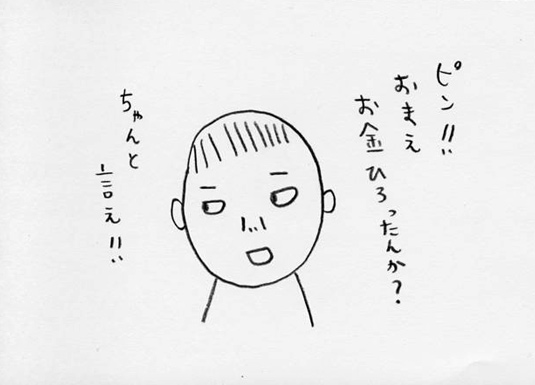 ピン!!
おまえ
お金ひろったんか?
ちゃんと
言え!!